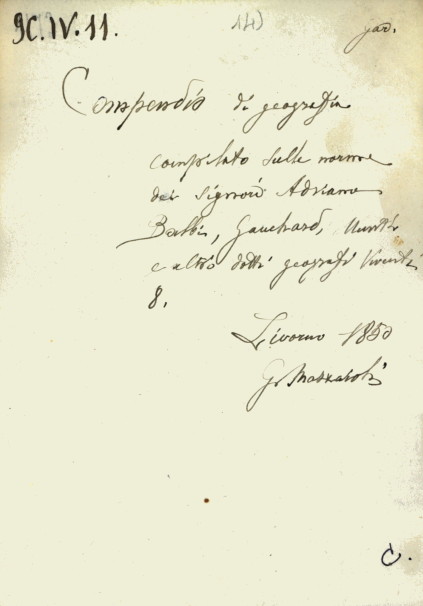 9C.IV.11.
14)
Compendio di geografia
compilato sulle norme
dei signori Adriano
Balbi, Gauchard, Muntz
e altri dotti geografi viventi
8.
Livorno 1850
G. Mazzaroli
C.